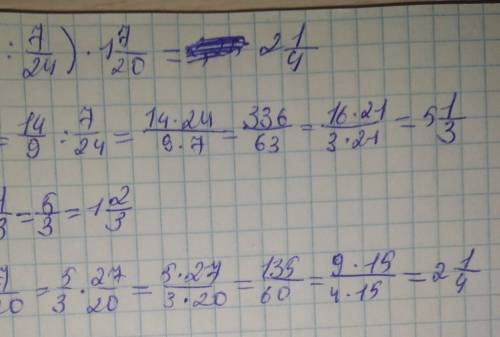 : 7/24) · 1 7/20 = 2 1/4
= 14/9 : 7/24 = 14·24/9·7 = 336/63 = 16·21/3·21 = 5 1/3
1/3 = 5/3 = 1 2/3
7/20 = 5/3 · 27/20 = 5·27/3·20 = 135/60 = 9·15/4·15 = 2 1/4